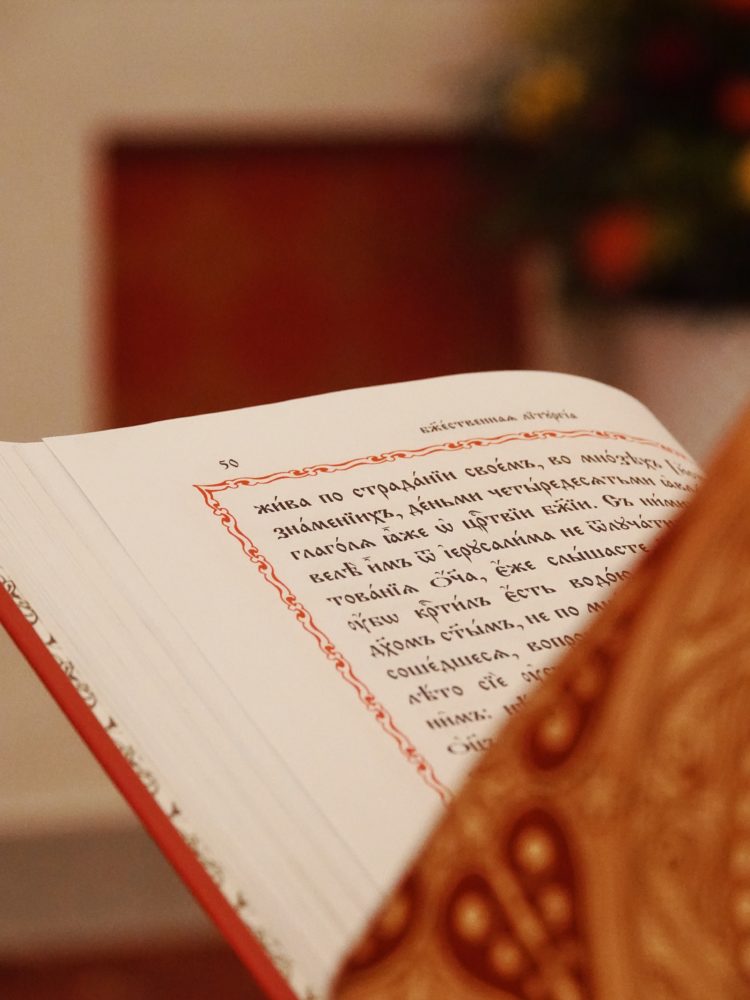 50
Бж҃е́ственнаѧ лїтꙋргі́а
жи́ва по страда́нїи свое́мъ, во мно́зѣхъ
зна́менїихъ, де́ньми четы́редесѧтьми
глаго́лѧ ꙗ҆́же ѡ҆ црⷭ҇твїи бж҃їи. Съ ни́ми
велѣ̀ и҆̀мъ ѿ і҆ерꙋсали́ма не ѿлꙋча́ти
това́нїѧ ѻ҆́ч҃а, є҆́же слы́шасте
ᲂу҆́бѡ крⷭ҇ти́лъ є҆́сть водо́ю
дх҃омъ ст҃ы́мъ, не по
соше́дшесѧ,
лѣ́то сїѐ
ни̑мъ: